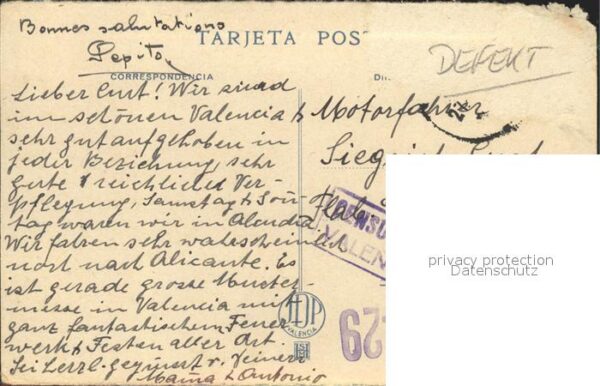 Bonnes salutations
Pepito
TARJETA POS
DEFEKT
CORRESPONDENCIA
DI
Lieber Curt! Wir sind
im schönen Valencia &
sehr gut aufgehoben in
jeder Beziehung, sehr
gute & reichliche Ver-
pflegung, Samstag & Sonn-
tag waren wir in
Wir fahren sehr wahrscheinlich
noch nach Alicante. Es
ist gerade grosse Muster-
messe in Valencia mit
ganz fantastischem Feuer-
werk & Festen aller Art.
Sei herzl. gegrüsst v. Deiner
Mama & Antonio
Motorfahrer
CENSU
VALEN
HDP
VALENCIA
29
privacy protection
Datenschutz